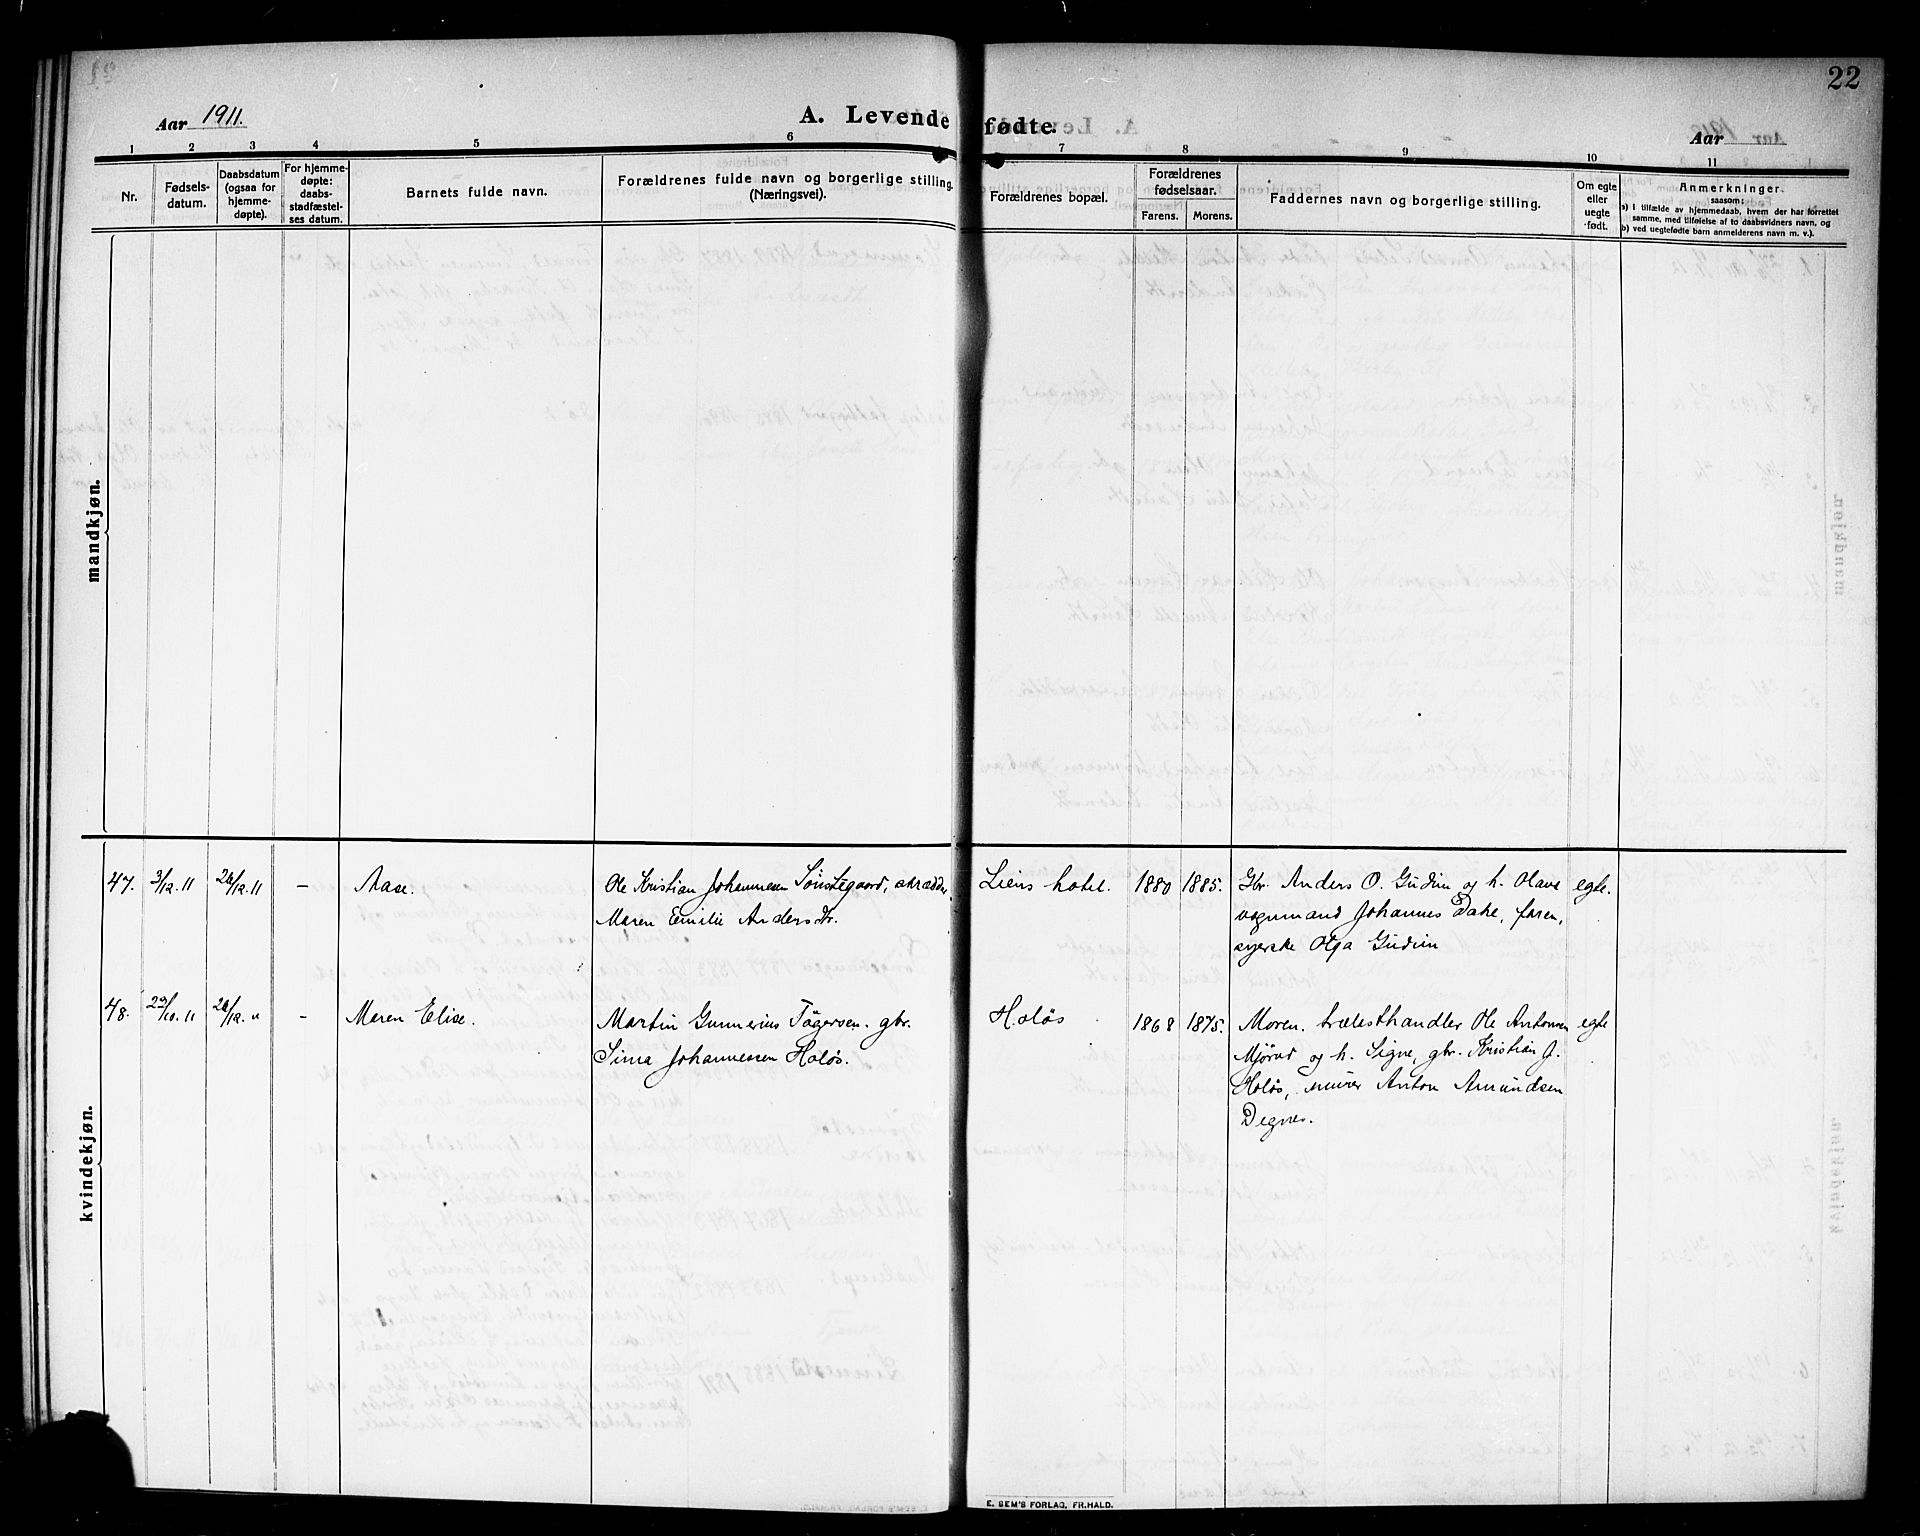 22
Aar 1911.
A. Levende fødte.
Aar
1 2 3 4 5 6 7 8 9 10 11
Nr.
Fødsels-
datum.
Daabsdatum
(ogsaa for
hjemme-
døpte).
For hjemme-
døpte:
daabs
stadfæstel-
ses datum.
Barnets fulde navn.
Forældrenes fulde navn og borgerlige stilling.
(Næringsvei).
Forældrenes bopæl.
Forældrenes
fødselsaar.
Farens. Morens.
Faddernes navn og borgerlige stilling.
Om egte
eller
uegte
født.
Anmerkninger.
saasom:
a) I tilfælde av hjemmedaab, hvem der har forrettet
samme, med tilføielse af to daabsvidners navn, og
b) ved uegtefødte barn anmelderens navn m. v.).
mandkjøn.
kvindekjøn.
47. 3/12.11 26/12.11 – Aase. Ole Kristian Johannesen Sönstegaard, skrædder Liens hotel. 1880 1885. Gbr. Anders O. Gudim og h. Olava egte.
Maren Emilie Andersdtr. vognmand Johannes Dahe, faren,
syerske Olga Gudim
48. 29/10.11 26/12.11 – Maren Elise. Martin Gunnerius Tögersen. gbr. Holøs 1868 1875. Moren. trælasthandler Ole Antonsen egte
Sina Johannessen Holøs. Mjørud og h. Signe, gbr. Kristian J.
Holøs, murer Anton Amundsen
Degnes.
E. SEM'S FORLAG, FR.HALD.